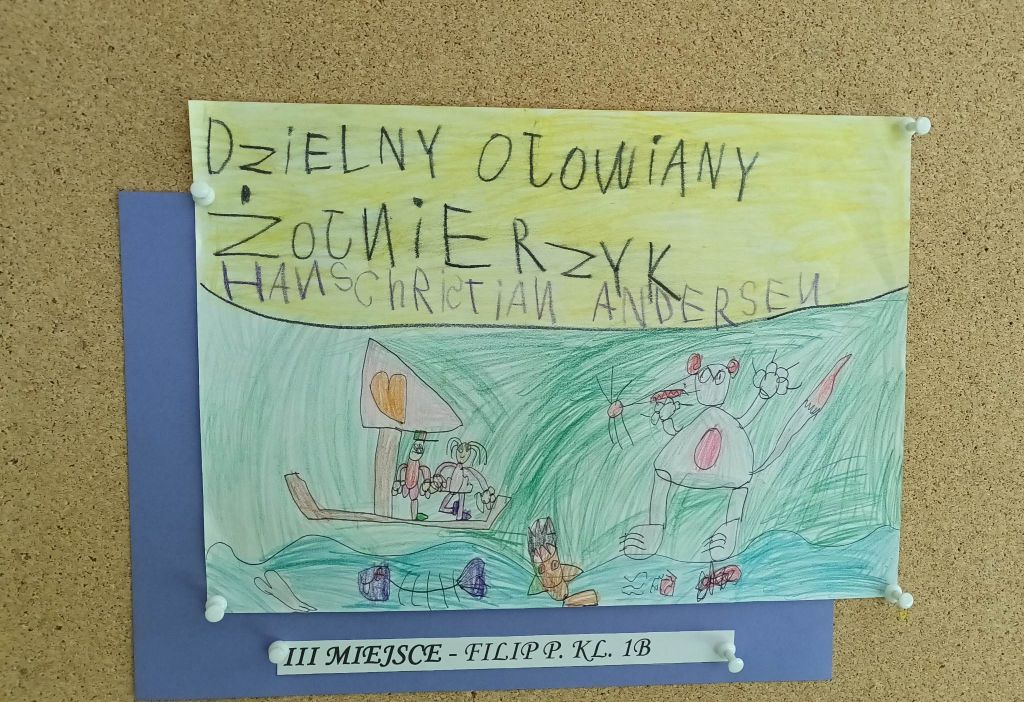 DZiELNY OŁOWiANY
ŻOŁNiERZYK
HANSCHRiCTiAN ANDERSEN
III MIEJSCE - FILIP P. KL. 1B